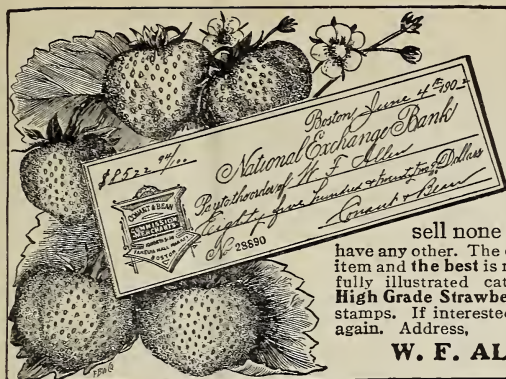 Boston, June 4th 1902
National Exchange Bank
$8522
Pay to the order of W F Allen
Eighty five hundred & twenty two Dollars
Conant & Bean
CONANT & BEAN
COMMISSION
MERCHANTS
FANEUIL HALL MARKET
BOSTON
No 28690
sell none
have any other. The
item and the best is
fully illustrated cat
High Grade Strawbe
stamps. If interested
again. Address,
W. F. AL